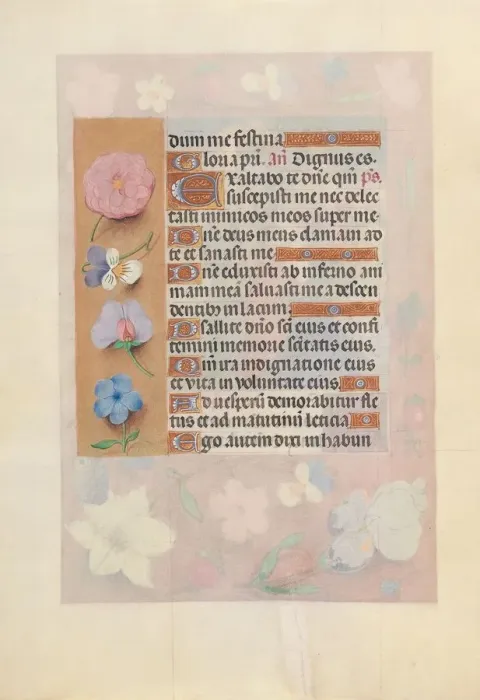 dum me festina
Gloria pr̃i. añ Dignus es.
Exaltabo te dñe qm̃ ps.
suscepisti me nec delec
tasti inimicos meos super me.
Dñe deus meus clamaui ad
te et sanasti me
Dñe eduxisti ab inferno ani
mam meã saluasti me a descen
dentibꝫ in lacum.
Psallite dño sc̃i eius et confi
temini memorie sc̃itatis eius.
Qm̃ ira indignatione eius
et vita in voluntate eius.
Ad uesperũ demorabitur fle
tus et ad matutinũ leticia
Ego autem dixi in habun